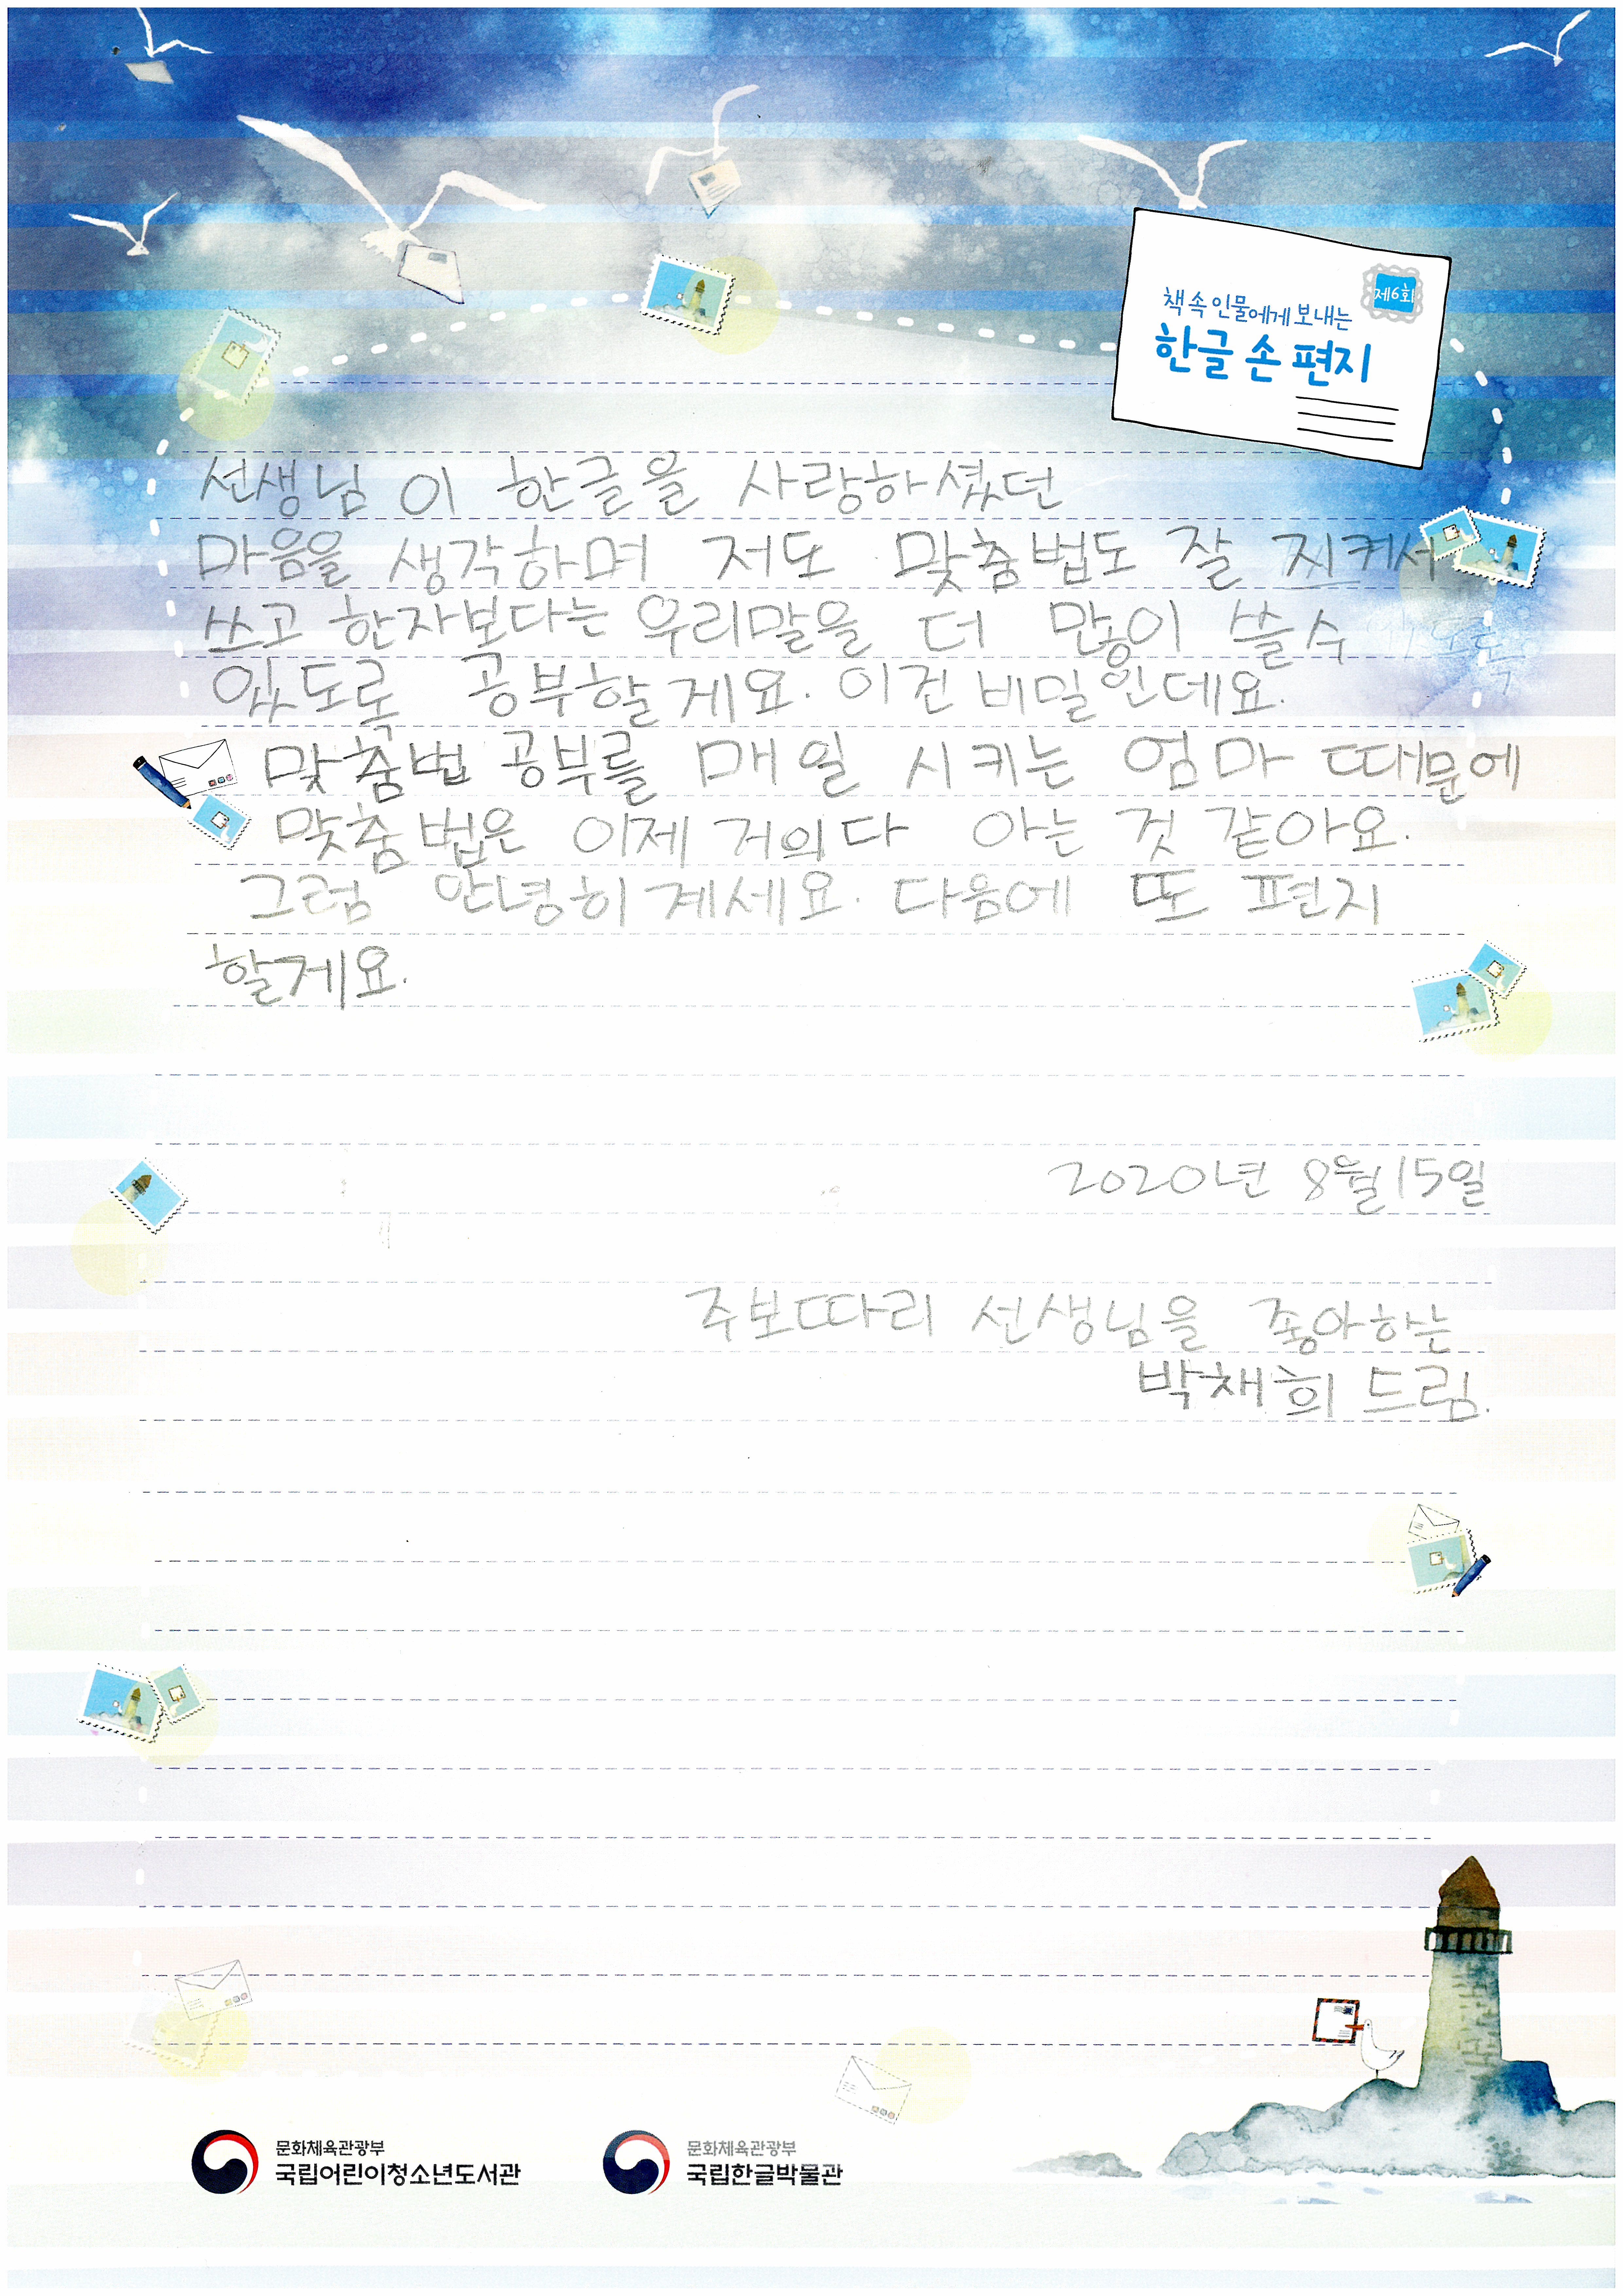 제6회
책 속 인물에게 보내는
한글 손 편지
선생님이 한글을 사랑하셨던
마음을 생각하며 저도 맞춤법도 잘 지켜서
쓰고 한자보다는 우리말을 더 많이 쓸 수
있도록 공부할게요. 이건 비밀인데요.
맞춤법 공부를 매일 시키는 엄마 때문에
맞춤법은 이제 거의 다 아는 것 같아요.
그럼 안녕히 계세요. 다음에 또 편지
할게요.
2020년 8월 15일
주보따리 선생님을 좋아하는
박채희 드림.
문화체육관광부
국립어린이청소년도서관
문화체육관광부
국립한글박물관